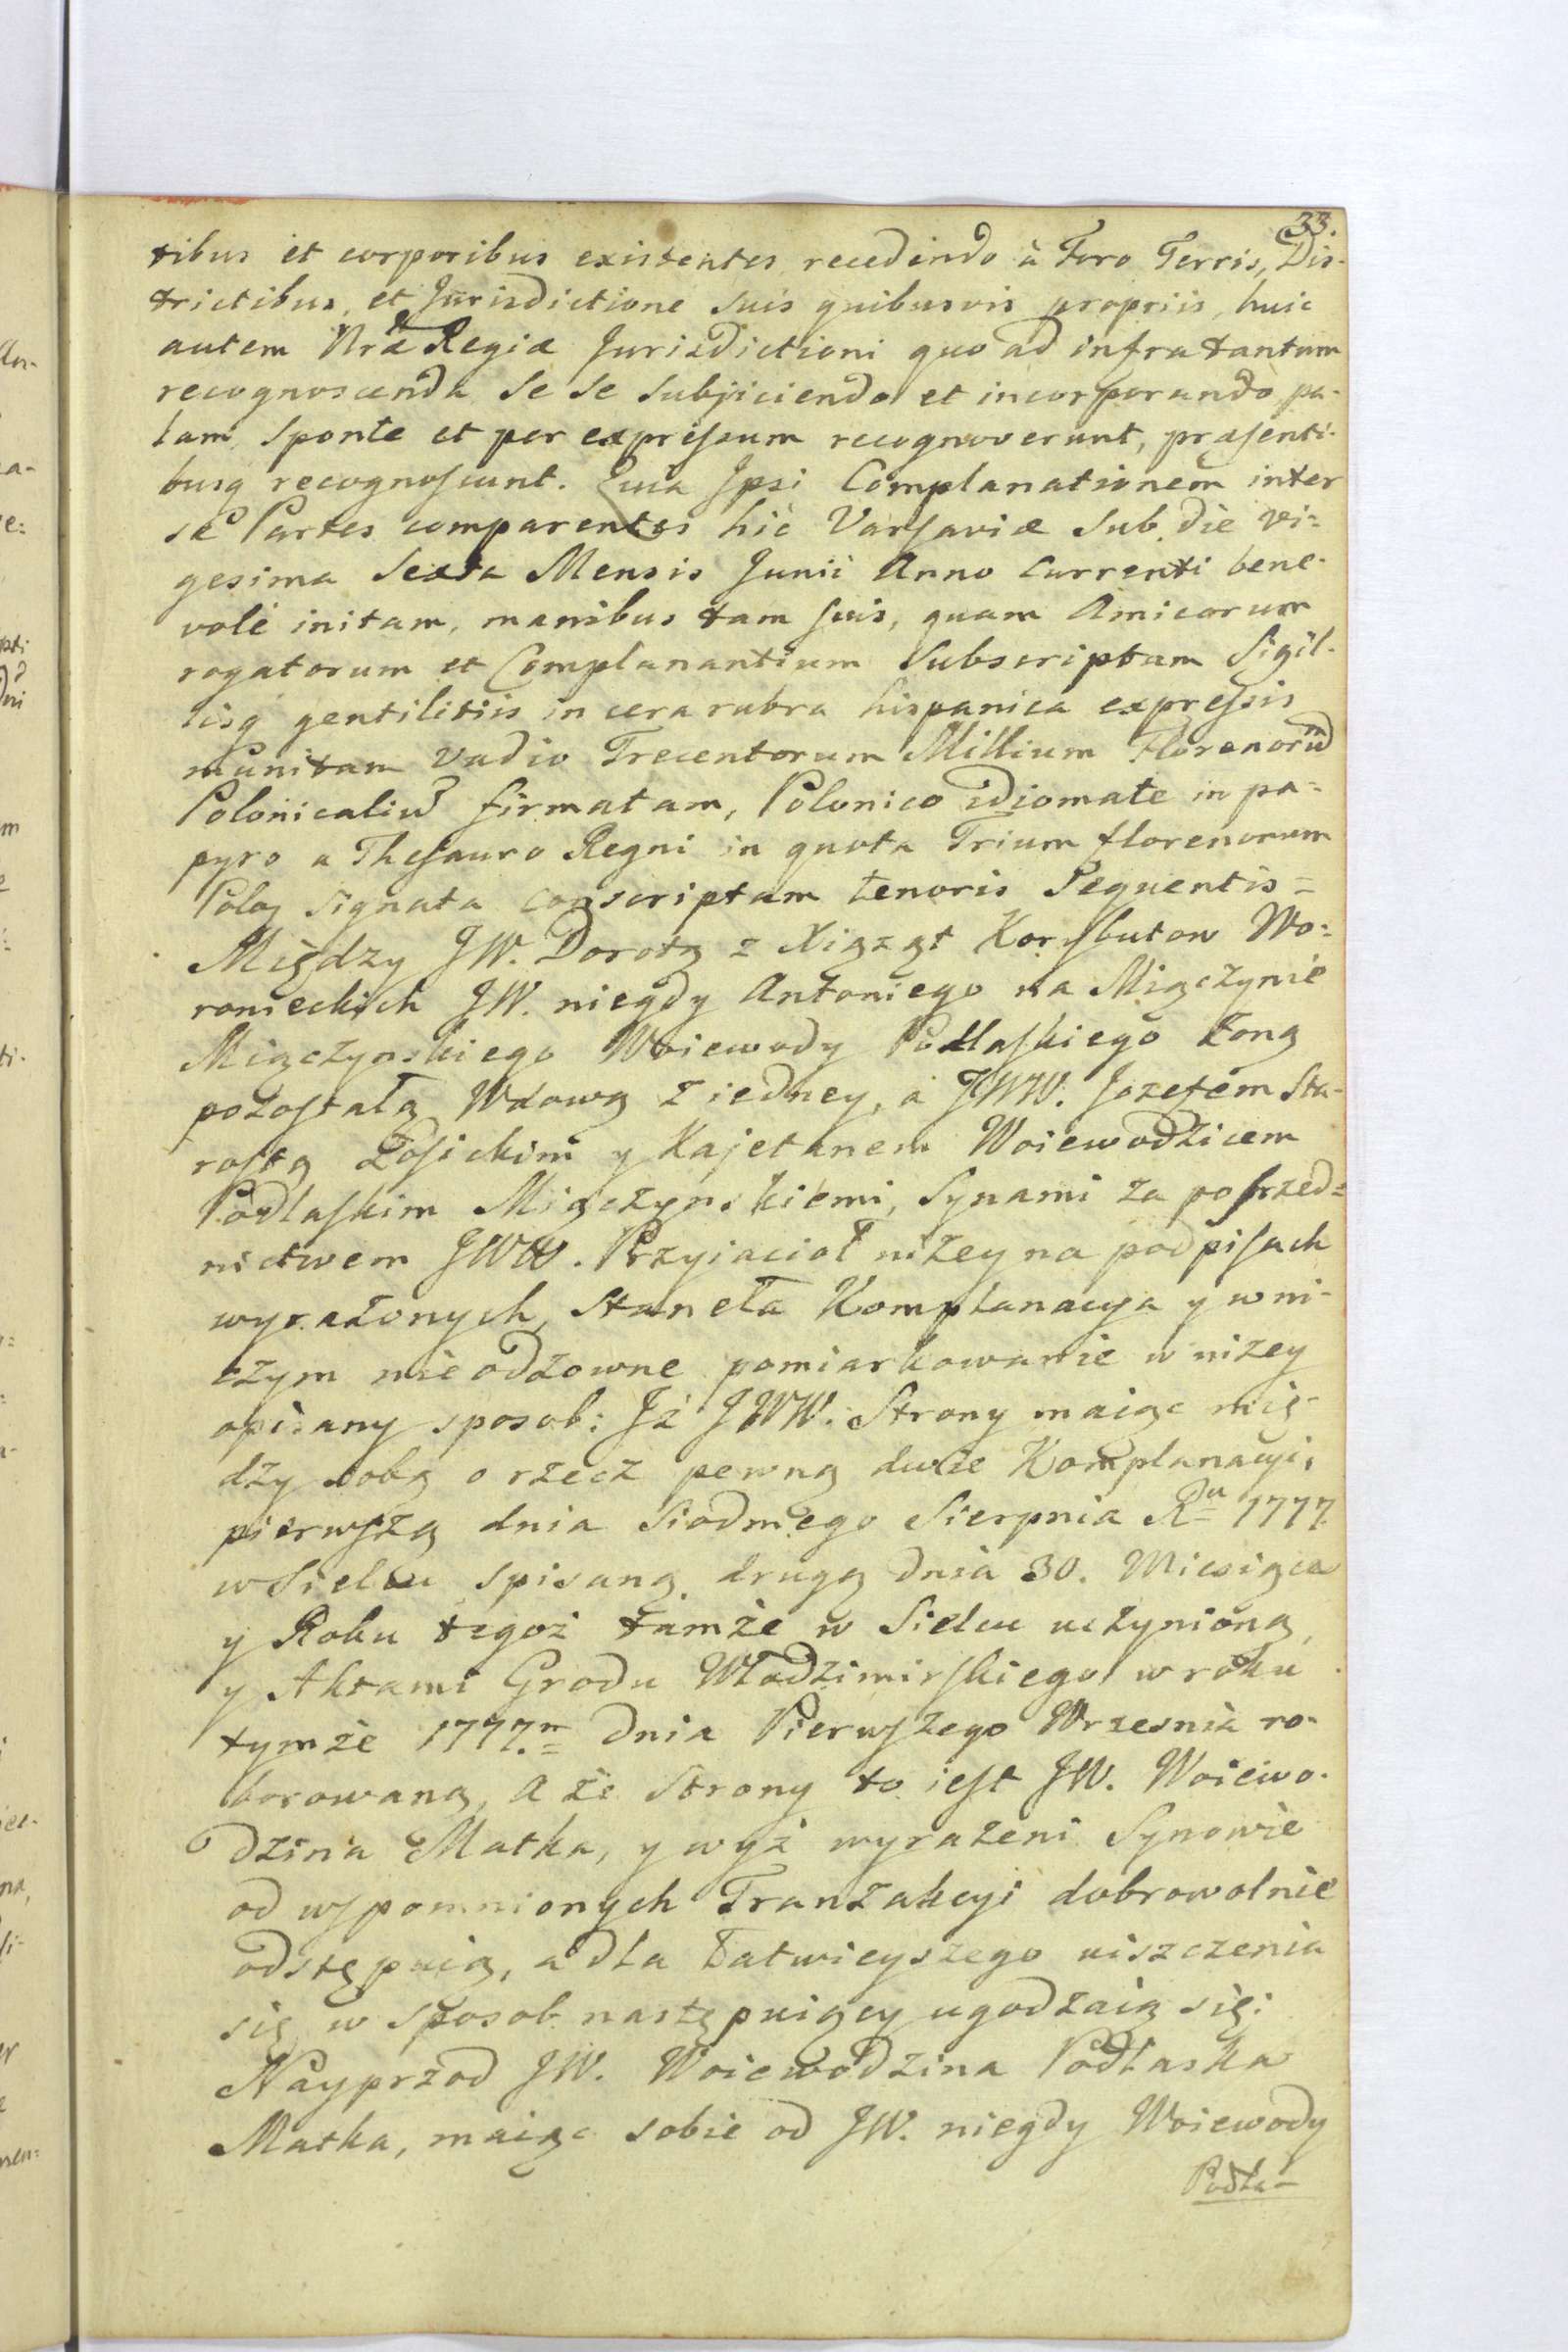 33.
tibus et corporibus existentes recedendo à Foro Terris, Dis-
trictibus, et Jurisdictione suis quibusvis propriis, huic
autem Nræ Regiæ Jurisdictioni quo ad infra tantum
recognoscenda se se subjiciendo et incorporando pa-
lam, sponte et per expreſsum recognoverunt, præſenti-
busq recognoſcunt. Quia Ipsi Complanationem inter
se Partes comparentes hic Varſaviæ sub die vi=
gesima sexta Mensis Junii Anno Currenti bene-
volè initam, manibus tam ſuis, quam Amicorum
rogatorum et Complanantium subscriptam Sigil-
lisq gentilitiis in cera rubra hispanica expreſsis
munitam Vadio Trecentorum Millium Florenorũ
Polonicaliũ firmatam, Polonico idiomate in pa=
pyro a Theſauro Regni in quota Trium florenorum
Poloz signata conscriptam tenoris Sequentis=
Między JW. Dorotą z Xiążąt Korybutow Wo=
ronieckich JW. niegdy Antoniego na Miączynie
Miączynskiego Woiewody Podlaſkiego Żoną
pozoſtałą Wdową z iedney, a JWW. Jozefem Sta-
roſtą Łoſickim y Kajetanem Woiewodzicem
Podlaſkim Miączynskiemi, Synami za poſrzed=
nictwem JWW. Przyiacioł niżey na podpiſach
wyrażonych, Staneła Komplanacya y w ni-
czym nieodzowne pomiarkowanie w niżey
opisany sposob: Iż JWW. Strony maiąc mię-
dzy sobą o rzecz pewną dwie Komplanacyi,
pierwſzą dnia Siodmego Sierpnia Ru 1777
w Sielcu spisaną, drugą dnia 30. Miesiąca
y Roku tegoż tamże w Sielcu uczynioną,
y Aktami Grodu Włodzimirſkiego w roku
tymże 1777.m dnia Pierwſzego Wrzesnia ro-
borowaną, A że Strony to ieſt JW. Woiewo-
dzina Matka, y wyż wyrażeni Synowie
od wſpomnionych Tranzakcyi dobrowolnie
odstępuią, a dla łatwieyszego uiszczenia
się w sposob następuiący ugodzaią się:
Nayprzod JW. Woiewodzina Podlaska
Matka, maiąc sobie od JW. niegdy Woiewody
Podla-